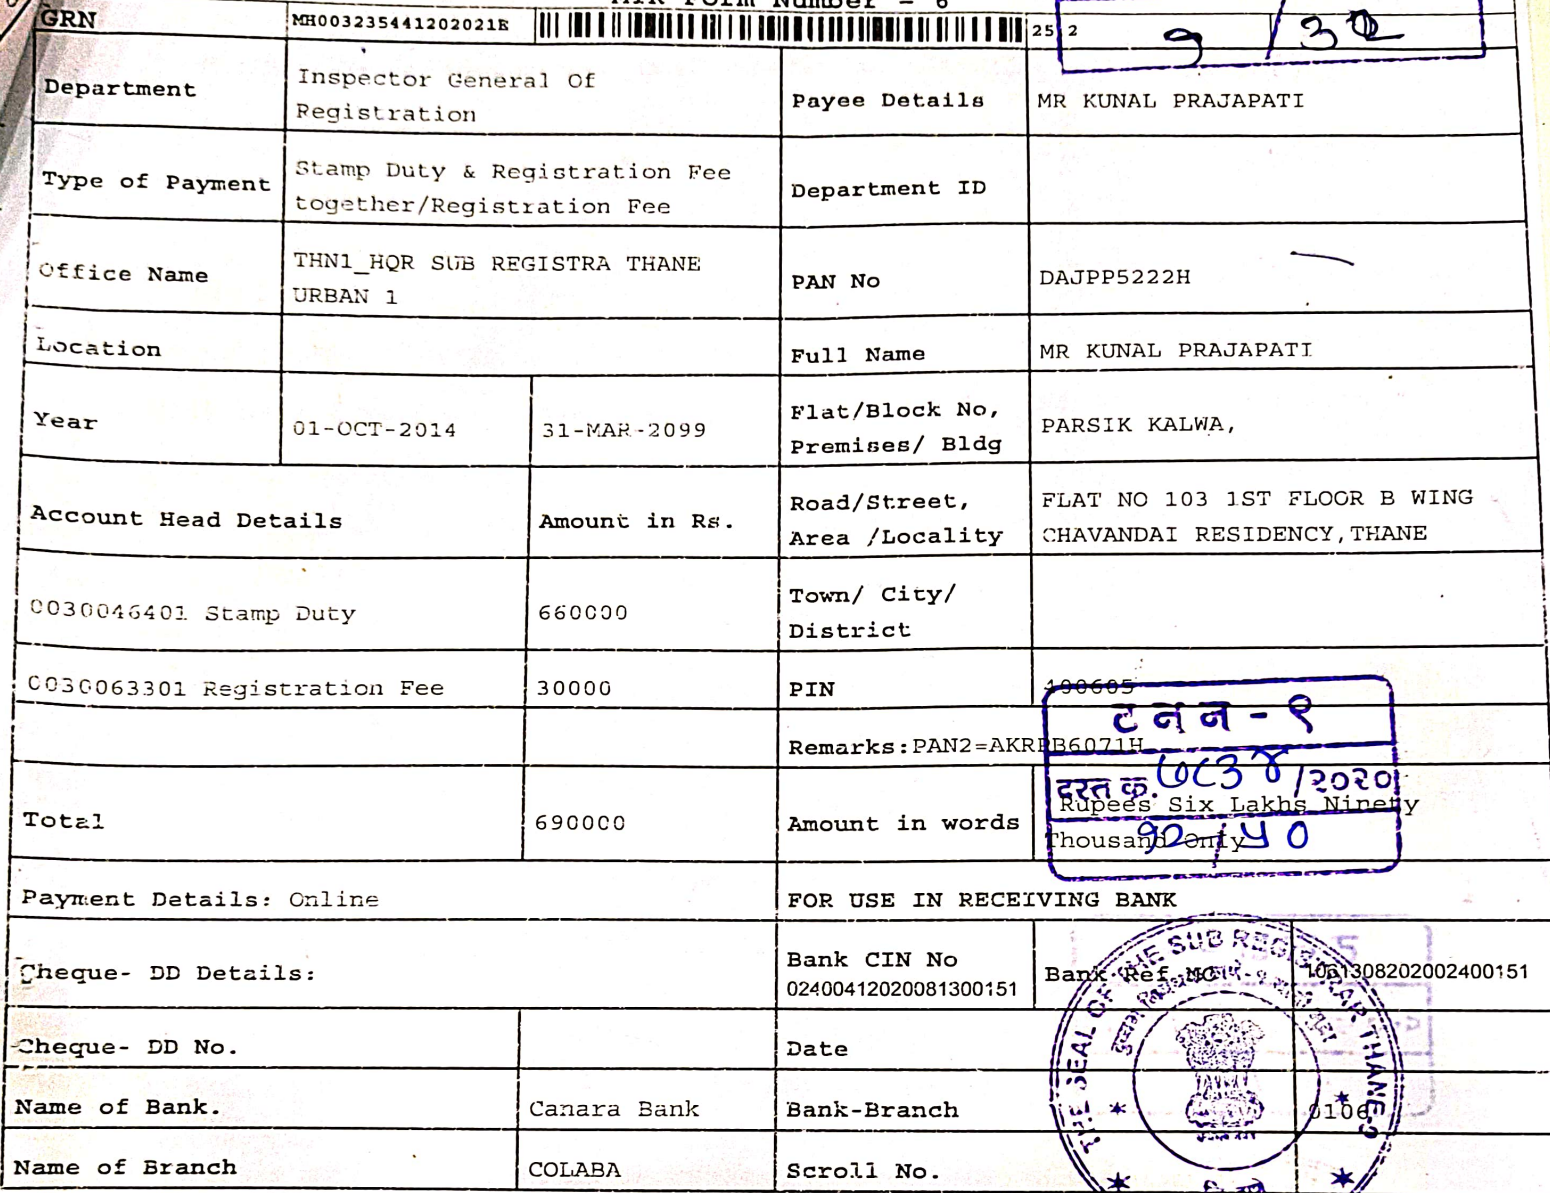 GRN MH003235441202021E 25.2
Department Inspector General Of Registration Payee Details MR KUNAL PRAJAPATI
Type of Payment Stamp Duty & Registration Fee together/Registration Fee Department ID
Office Name THN1_HQR SUB REGISTRA THANE URBAN 1 PAN No DAJPP5222H
Location Full Name MR KUNAL PRAJAPATI
Year 01-OCT-2014 31-MAR-2099 Flat/Block No, Premises/ Bldg PARSIK KALWA,
Account Head Details Amount in Rs. Road/Street, Area /Locality FLAT NO 103 1ST FLOOR B WING CHAVANDAI RESIDENCY,THANE
0030046401 Stamp Duty 660000 Town/ City/ District
0030063301 Registration Fee 30000 PIN 400605
टनन - १
Remarks:PAN2=AKRPB6071H
दस्त क. ७८३४/२०२०
Total 690000 Amount in words Rupees Six Lakhs Ninety Thousand Only
Payment Details: Online FOR USE IN RECEIVING BANK
Cheque- DD Details: Bank CIN No 02400412020081300151 Bank Ref NO 1061308202002400151
Cheque- DD No. Date
Name of Bank. Canara Bank Bank-Branch 0106
Name of Branch COLABA Scroll No.
THE SEAL OF THE SUB REGISTRAR THANE